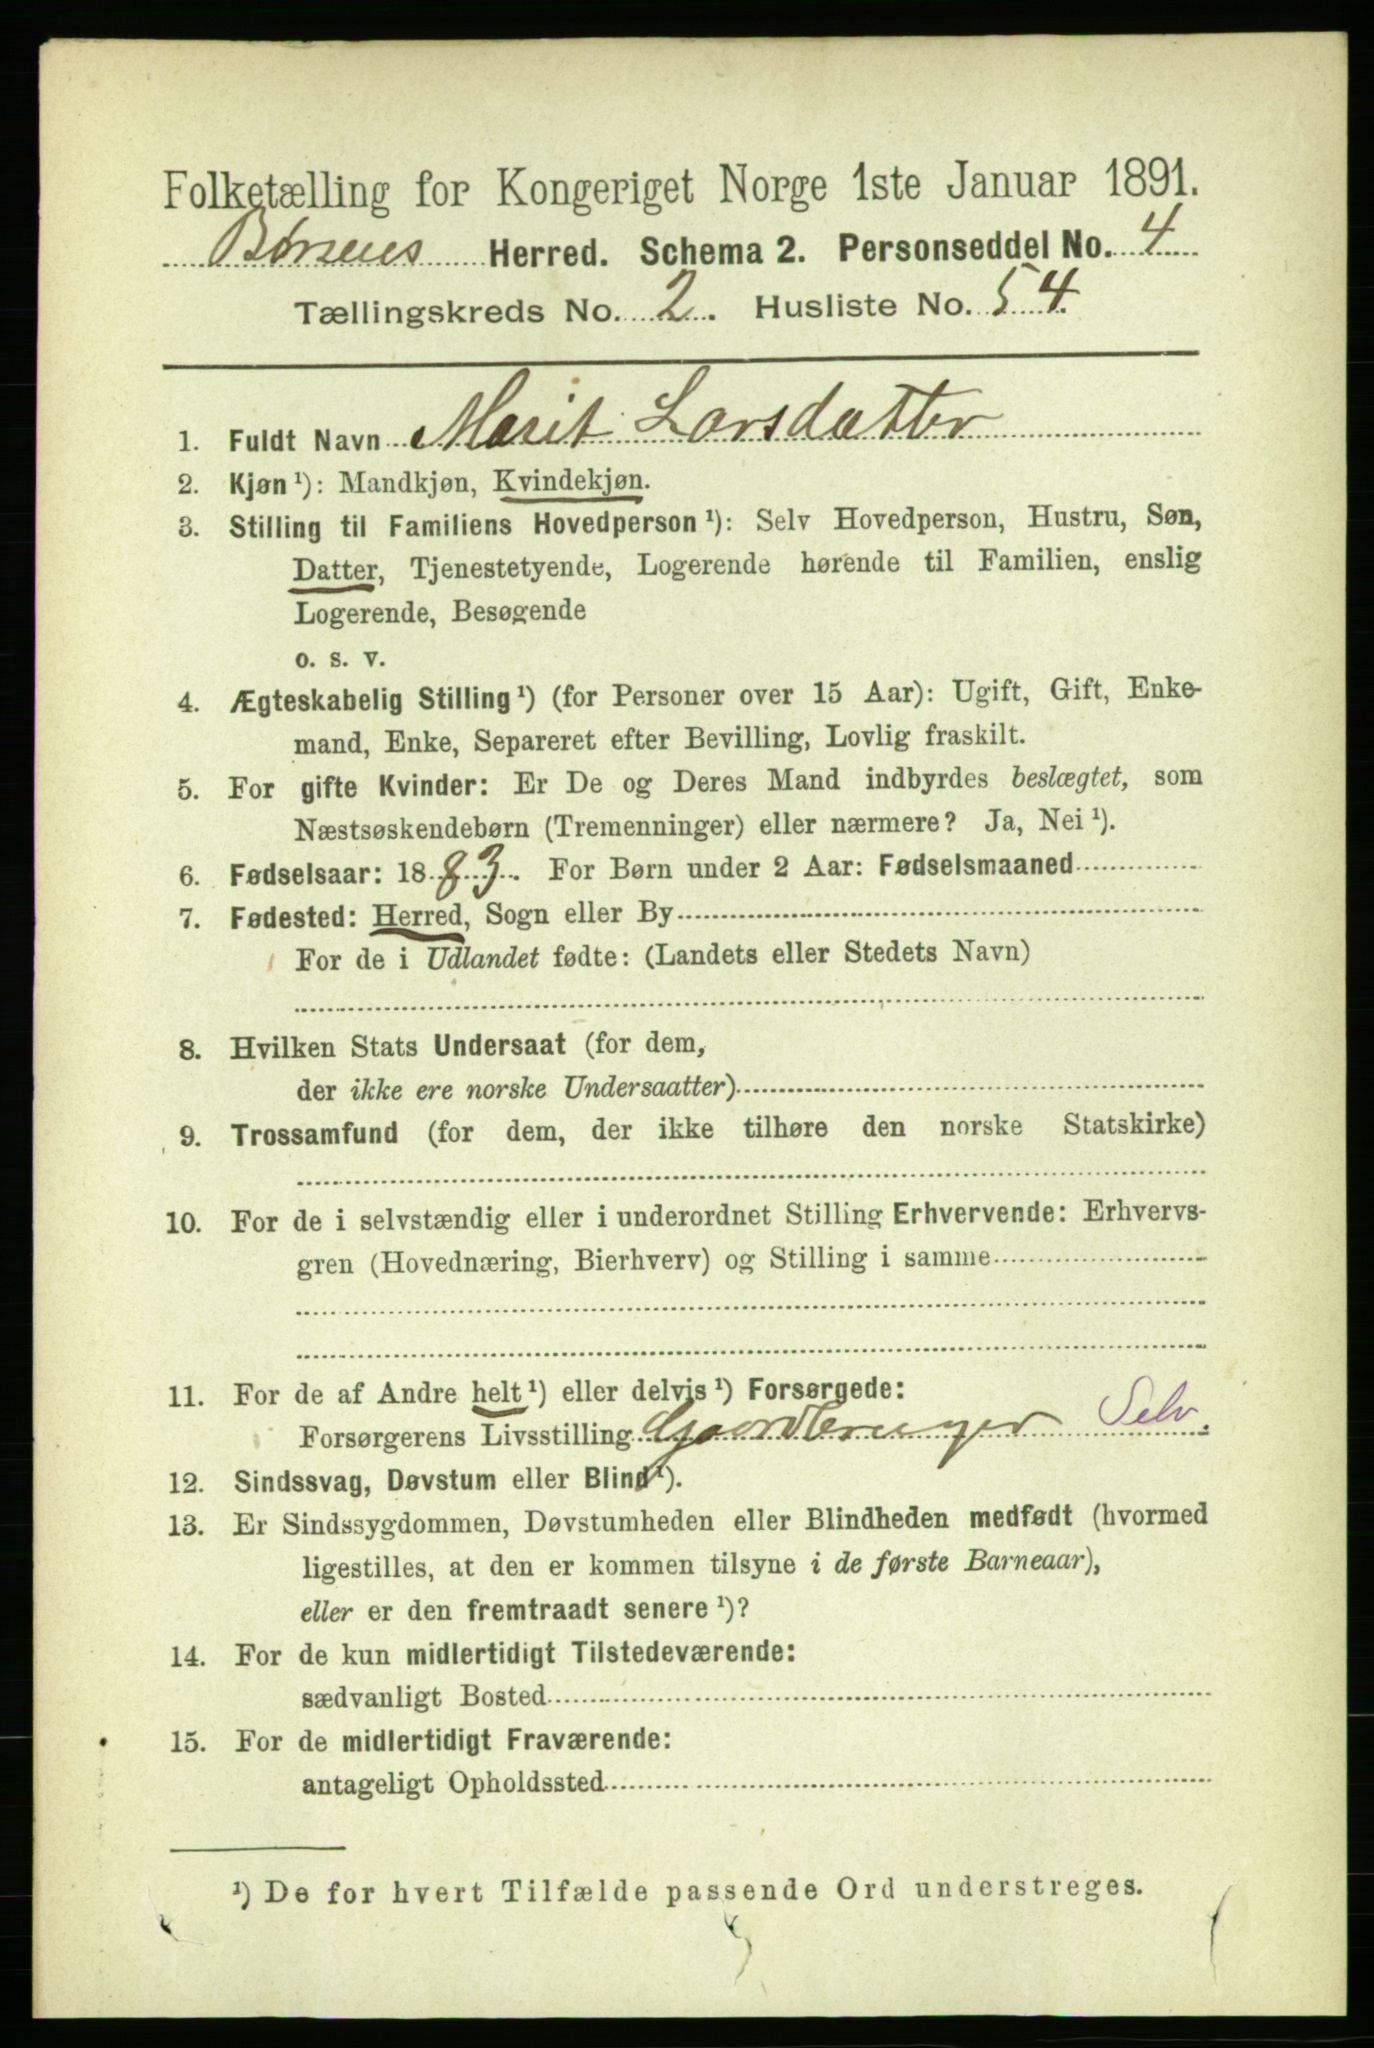 Folketælling for Kongeriget Norge 1ste Januar 1891.
Børsens Herred. Schema 2. Personseddel No. 4
Tællingskreds No. 2. Husliste No. 54.
1. Fuldt Navn Marit Larsdatter
2. Kjøn¹): Mandkjøn, Kvindekjøn.
3. Stilling til Familiens Hovedperson¹): Selv Hovedperson, Hustru, Søn,
Datter, Tjenestetyende, Logerende hørende til Familien, enslig
Logerende, Besøgende
o. s. v.
4. Ægteskabelig Stilling¹) (for Personer over 15 Aar): Ugift, Gift, Enke-
mand, Enke, Separeret efter Bevilling, Lovlig fraskilt.
5. For gifte Kvinder: Er De og Deres Mand indbyrdes beslægtet, som
Næstsøskendebørn (Tremenninger) eller nærmere? Ja, Nei¹).
6. Fødselsaar: 1883. For Børn under 2 Aar: Fødselsmaaned
7. Fødested: Herred, Sogn eller By
For de i Udlandet fødte: (Landets eller Stedets Navn)
8. Hvilken Stats Undersaat (for dem,
der ikke ere norske Undersaatter)
9. Trossamfund (for dem, der ikke tilhøre den norske Statskirke)
10. For de i selvstændig eller i underordnet Stilling Erhvervende: Erhvervs-
gren (Hovednæring, Bierhverv) og Stilling i samme
11. For de af Andre helt¹) eller delvis¹) Forsørgede:
Forsørgerens Livsstilling Gaardbruger Selv.
12. Sindssvag, Døvstum eller Blind¹).
13. Er Sindssygdommen, Døvstumheden eller Blindheden medfødt (hvormed
ligestilles, at den er kommen tilsyne i de første Barneaar),
eller er den fremtraadt senere¹)?
14. For de kun midlertidigt Tilstedeværende:
sædvanligt Bosted
15. For de midlertidigt Fraværende:
antageligt Opholdssted
¹) De for hvert Tilfælde passende Ord understreges.